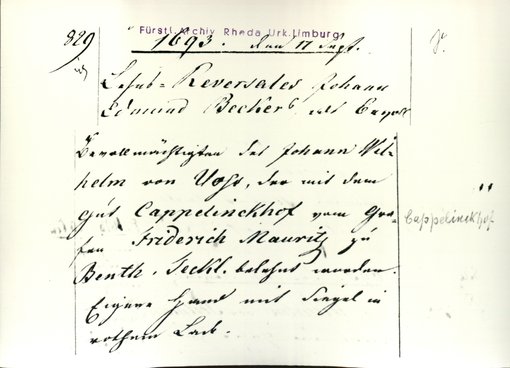 Fürstl. Archiv Rheda Urk. Limburg
829
1693. den 17 Sept.
Lehns-Reversales Johann
Edmund Beckers als
Bevollmächtigten des Johann Wil-
helm von Vogt, der mit dem
gut Cappelinckhof vom Gra-
fen Friderich Mauritz zu
Cappelinckhof
Benth. Teckl. belehnt worden.
Eigene Hand mit Siegel in
rothem Lack.